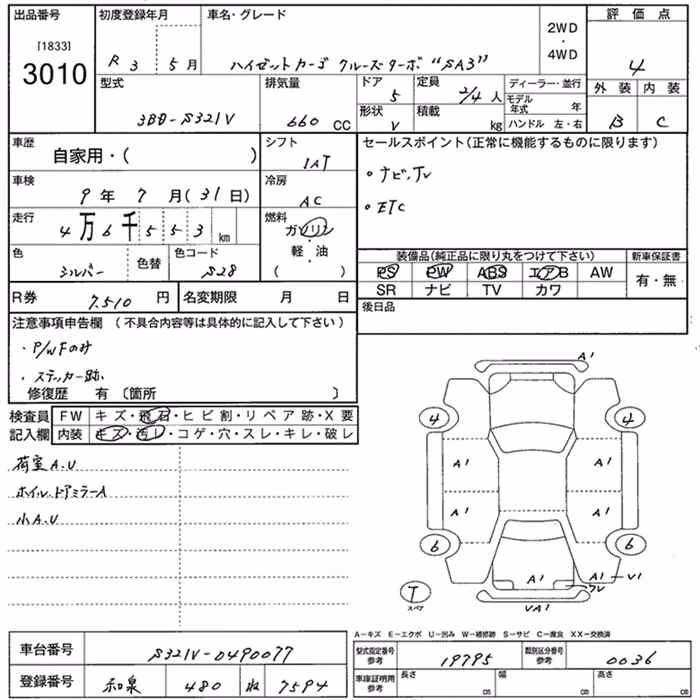 出品番号 初度登録年月 車名・グレード 2WD・4WD 評価点
[1833] 3010 R 3 5月 ハイゼットカーゴ クルーズターボ "SA3" 4
型式 排気量 ドア 定員 ディーラー・並行 外装 内装
3BD-S321V 660 CC 5 2/4人 モデル年式 年 B C
形状 積載
V kg ハンドル 左・右
車歴 自家用・( ) シフト 1AT セールスポイント(正常に機能するものに限ります)
車検 9年 7月(31日) 冷房 AC ・ナビ.TV
走行 4万6千553km 燃料 ガソリン・軽・油 ( ) ・ETC
色 シルバー 色替 色コード S28
装備品(純正品に限り丸をつけて下さい) 新車保証書
PS PW ABS エアB AW 有・無
SR ナビ TV カワ
R券 7,510円 名変期限 月 日 後日品
注意事項申告欄 (不具合内容等は具体的に記入して下さい)
・P/WFのみ
・ステッカー跡
修復歴 有 〔箇所 〕
検査員記入欄 FW キズ・飛石・ヒビ割・リペア跡・X要
内装 キズ・汚レ・コゲ・穴・スレ・キレ・破レ
荷室A.U
ホイル.ドアミラーA
小A.U
A1
4 4
A1 A1
A1 A1
6 6
A1 A1 V1
T スペア VA1
A-キズ E-エクボ U-凹み W-補修跡 S-サビ C-腐食 XX-交換済
車台番号 S321V-0490077 型式指定番号 参考 19795 類別区分番号 参考 0036
登録番号 和泉 480 ね 7594 車庫証明用 参考 長さ cm 幅 cm 高さ cm